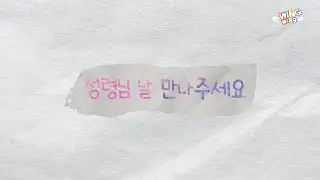 WING WING
성령님 날 만나주세요